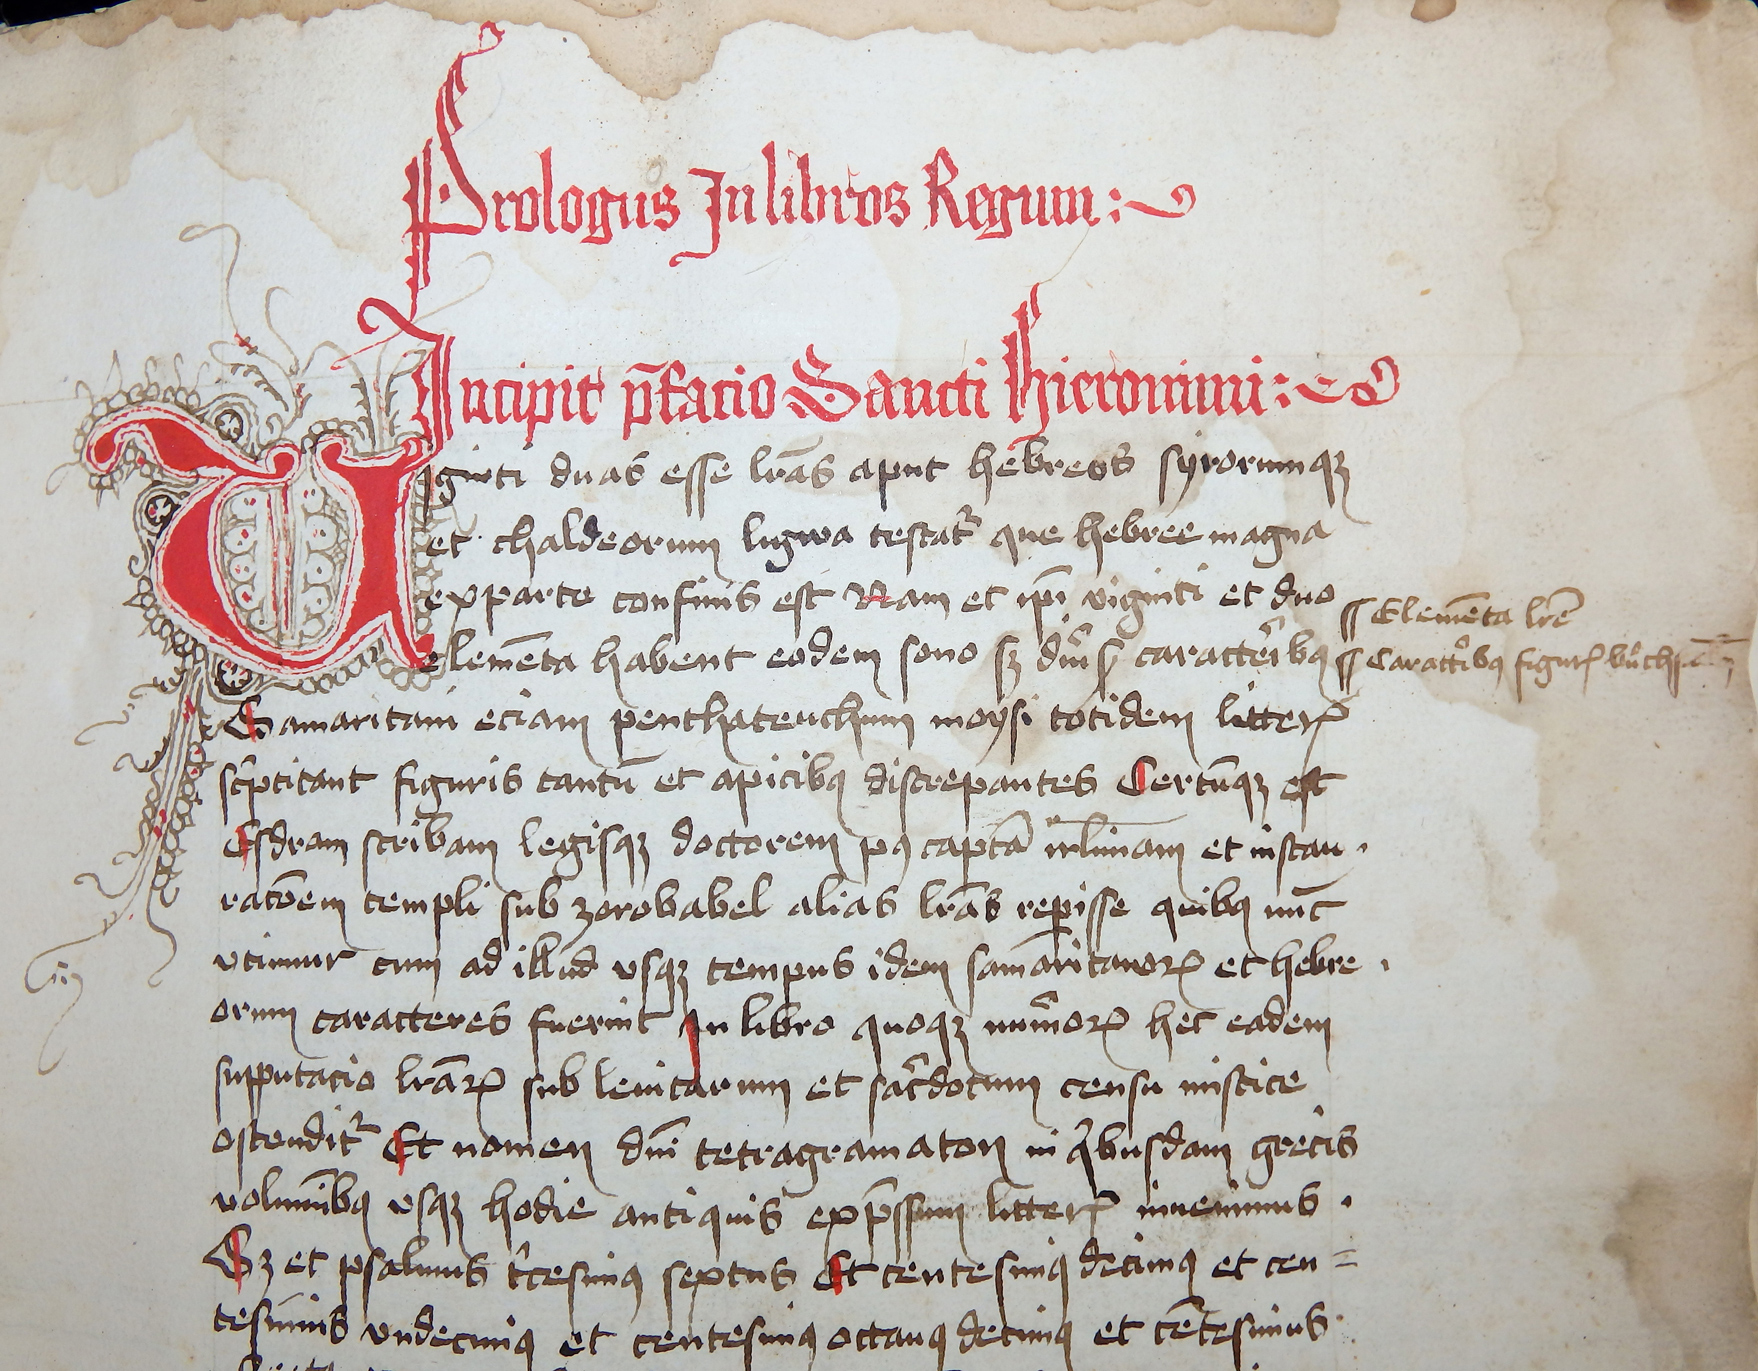 Prologus In libros Regum :~
Incipit p̄facio Sancti Hieronimi :~
Viginti duas esse lr̄as aput hebreos syrorumqꝫ
et chaldeorum lugwa testat᷑ que hebree magna
exparte confinis est Nam et ip̄i viginti et duo
elemēta habent eodem sono sꝫ diu᷑s caracteribꝰ
Samaritani eciam penthateuchum moysi totidem litterꝭ
sc᷑ptitant figuris tantū et apicibꝰ discrepantes Certūqꝫ est
Esdram scribam legisqꝫ doctorem pꝰ captā irl̄imam et instau
racōem templi sub zorobabel alias lr̄as rep̱isse quibꝰ nūc
vtimur cum ad illud vsqꝫ tempus idem samaritanoꝝ et hebre
orum caracteres fuerint In libro quoqꝫ nūmoꝝ hec eadem
supputacio lr̄aꝝ sub leuitarum et sac᷑dotum censu mistice
ostendit᷑ Et nomen dn̄i tetragramaton in q᷑busdam grecis
voluminibꝰ vsqꝫ hodie antiquis exp̄ssum litterꝭ inuenimus .
Sꝫ et psalmus t᷑cesimꝰ septus Et centesimꝰ decimꝰ et cen=
tesimus vndecimꝰ et centesimꝰ octauꝰ decimꝰ et cētesimus
Elemēta lr̄e
Caract᷑ibꝰ figurꝭ